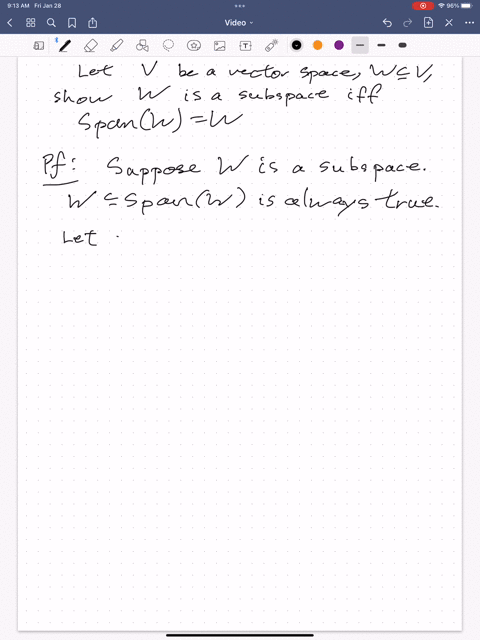 9:13 AM Fri Jan 28
96%
Video
Let V be a vector space, W⊆V,
show W is a subspace iff
Span(W)=W
Pf: Suppose W is a subspace.
W⊆Span(W) is always true.
Let